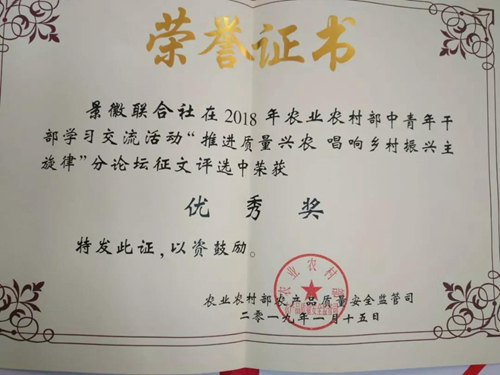 荣誉证书
景徽联合社在2018年农业农村部中青年干
部学习交流活动“推进质量兴农 唱响乡村振兴主
旋律”分论坛征文评选中荣获
优秀奖
特发此证,以资鼓励。
农业农村部农产品质量安全监管司
二零一九年一月十五日